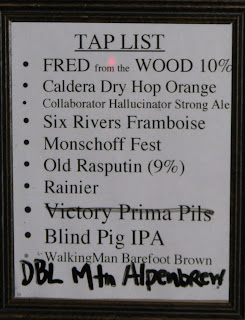 TAP LIST
• FRED from the WOOD 10%
• Caldera Dry Hop Orange
• Collaborator Hallucinator Strong Ale
• Six Rivers Framboise
• Monschoff Fest
• Old Rasputin (9%)
• Rainier
• Victory Prima Pils
• Blind Pig IPA
• WalkingMan Barefoot Brown
DBL Mtn Alpenbrew